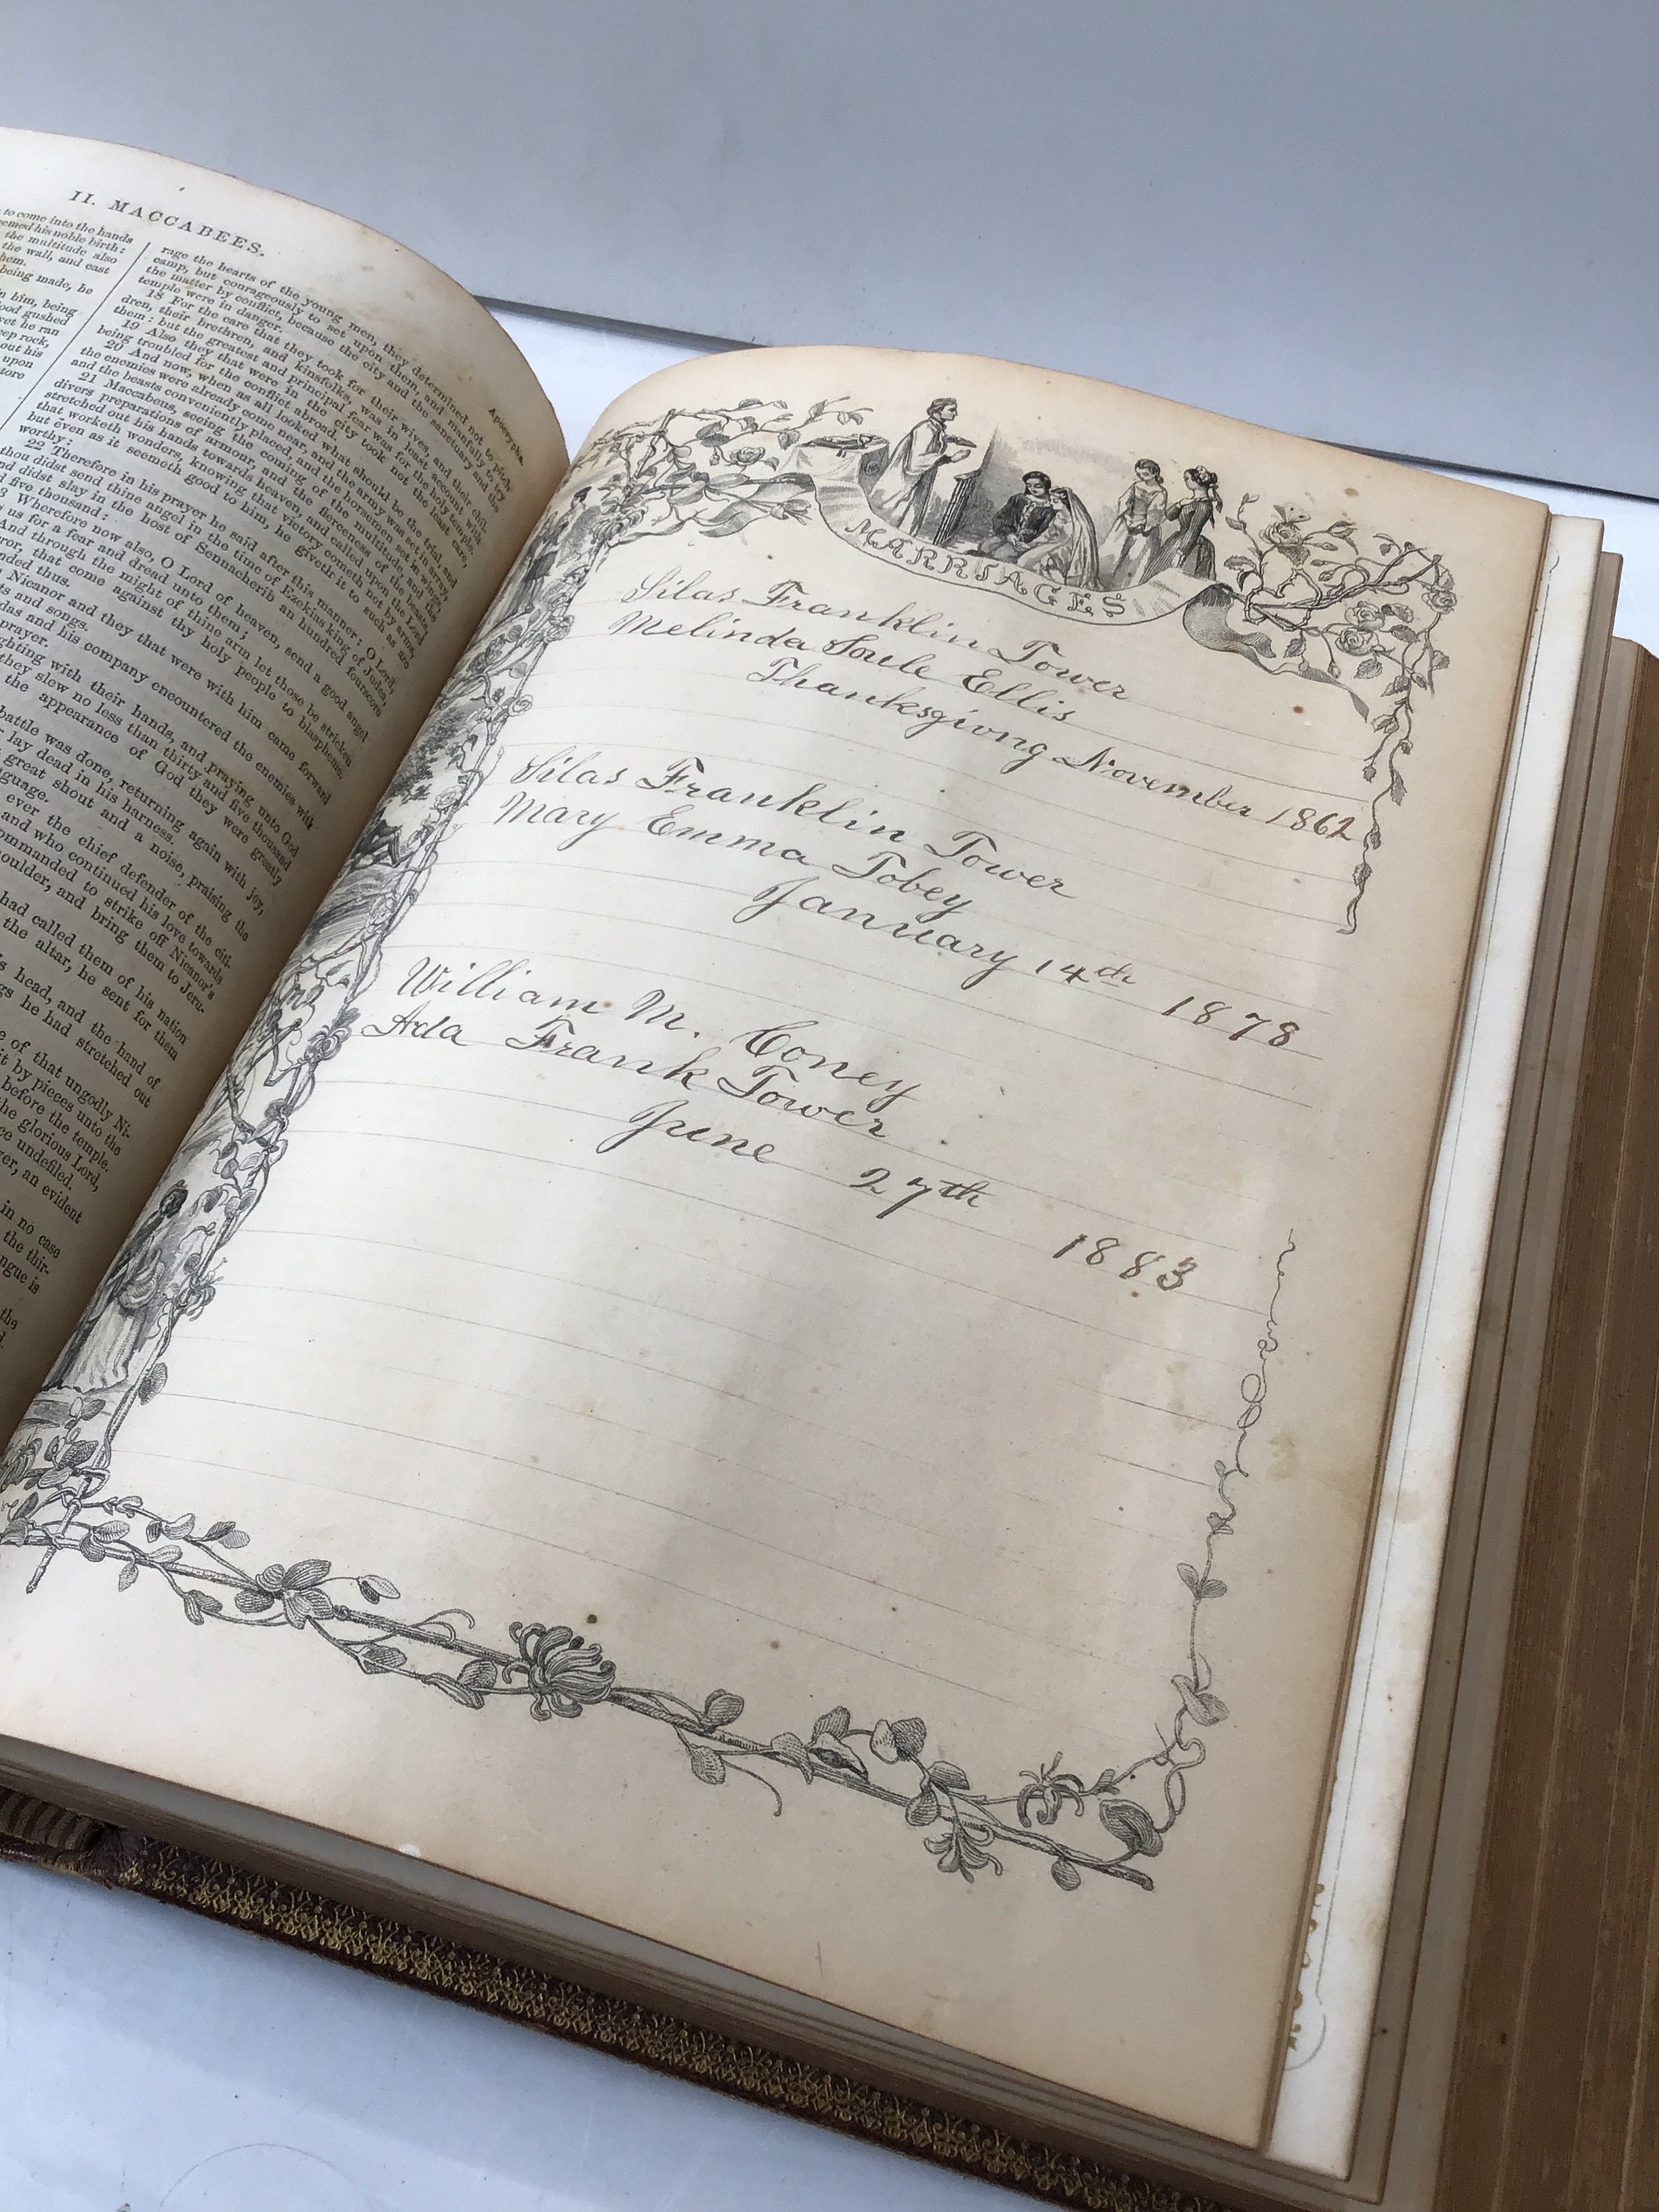 II. MACCABEES.
Apocrypha.
to come into the hands
his noble birth:
the multitude also
the wall, and cast
being made, he
in him, being
gushed
he ran
rock,
out his
upon
rage the hearts of the young men, they determined not to pitch
camp, but courageously to set upon them, and manfully to try
the matter by conflict, because the city and the sanctuary and the
temple were in danger.
18 For the care that they took for their wives, and their chil-
dren, their brethren, and kinsfolks, was in least account with
them: but the greatest and principal fear was for the holy temple.
19 Also they that were in the city took not the least care,
being troubled for the conflict abroad.
20 And now, when as all looked what should be the trial, and
the enemies were already come near, and the army was set in array,
and the beasts conveniently placed, and the horsemen set in wings,
21 Maccabeus, seeing the coming of the multitude, and the
divers preparations of armour, and the fierceness of the beasts,
stretched out his hands towards heaven, and called upon the Lord
that worketh wonders, knowing that victory cometh not by arms,
but even as it seemeth good to him, he giveth it to such as are
worthy:
22 Therefore in his prayer he said after this manner; O Lord,
thou didst send thine angel in the time of Ezekias king of Judea,
and didst slay in the host of Sennacherib an hundred fourscore
five thousand:
Wherefore now also, O Lord of heaven, send a good angel
us for a fear and dread unto them;
And through the might of thine arm let those be stricken
that come against thy holy people to blaspheme.
ended thus.
Nicanor and they that were with him came forward
and songs.
and his company encountered the enemies with
prayer.
fighting with their hands, and praying unto God
they slew no less than thirty and five thousand
the appearance of God they were greatly
battle was done, returning again with joy,
lay dead in his harness.
great shout and a noise, praising the
language.
ever the chief defender of the citi-
and who continued his love towards
commanded to strike off Nicanor's
shoulder, and bring them to Jeru-
had called them of his nation
the altar, he sent for them
head, and the hand of
he had stretched out
of that ungodly Ni-
it by pieces unto the
before the temple.
the glorious Lord,
undefiled.
an evident
in no case
the thir-
tongue is
the
MARRIAGES
Silas Franklin Tower
Melinda Soule Ellis
Thanksgivong November 1862
Silas Franklin Tower
Mary Emma Tobey
January 14th 1878
William M. Coney
Ada Frank Tower
June 27th 1883